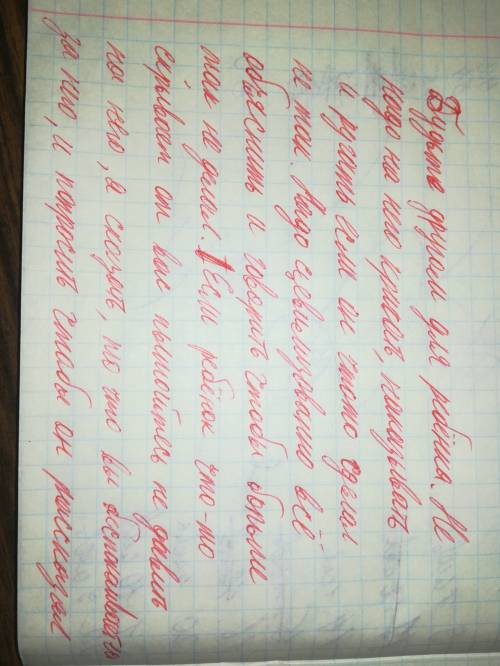 Будьте другом для ребёнка. Не
надо на него кричать, наказывать
и ругать если он чтото сделал
не так. Надо цевилизованно всё
обьяснить и говорить чтобы больше
так не делал. Если ребёнок что-то
скрывает от вас пытайтесь не давить
на него, а сказать, что
за него, и попросить чтобы он рассказал